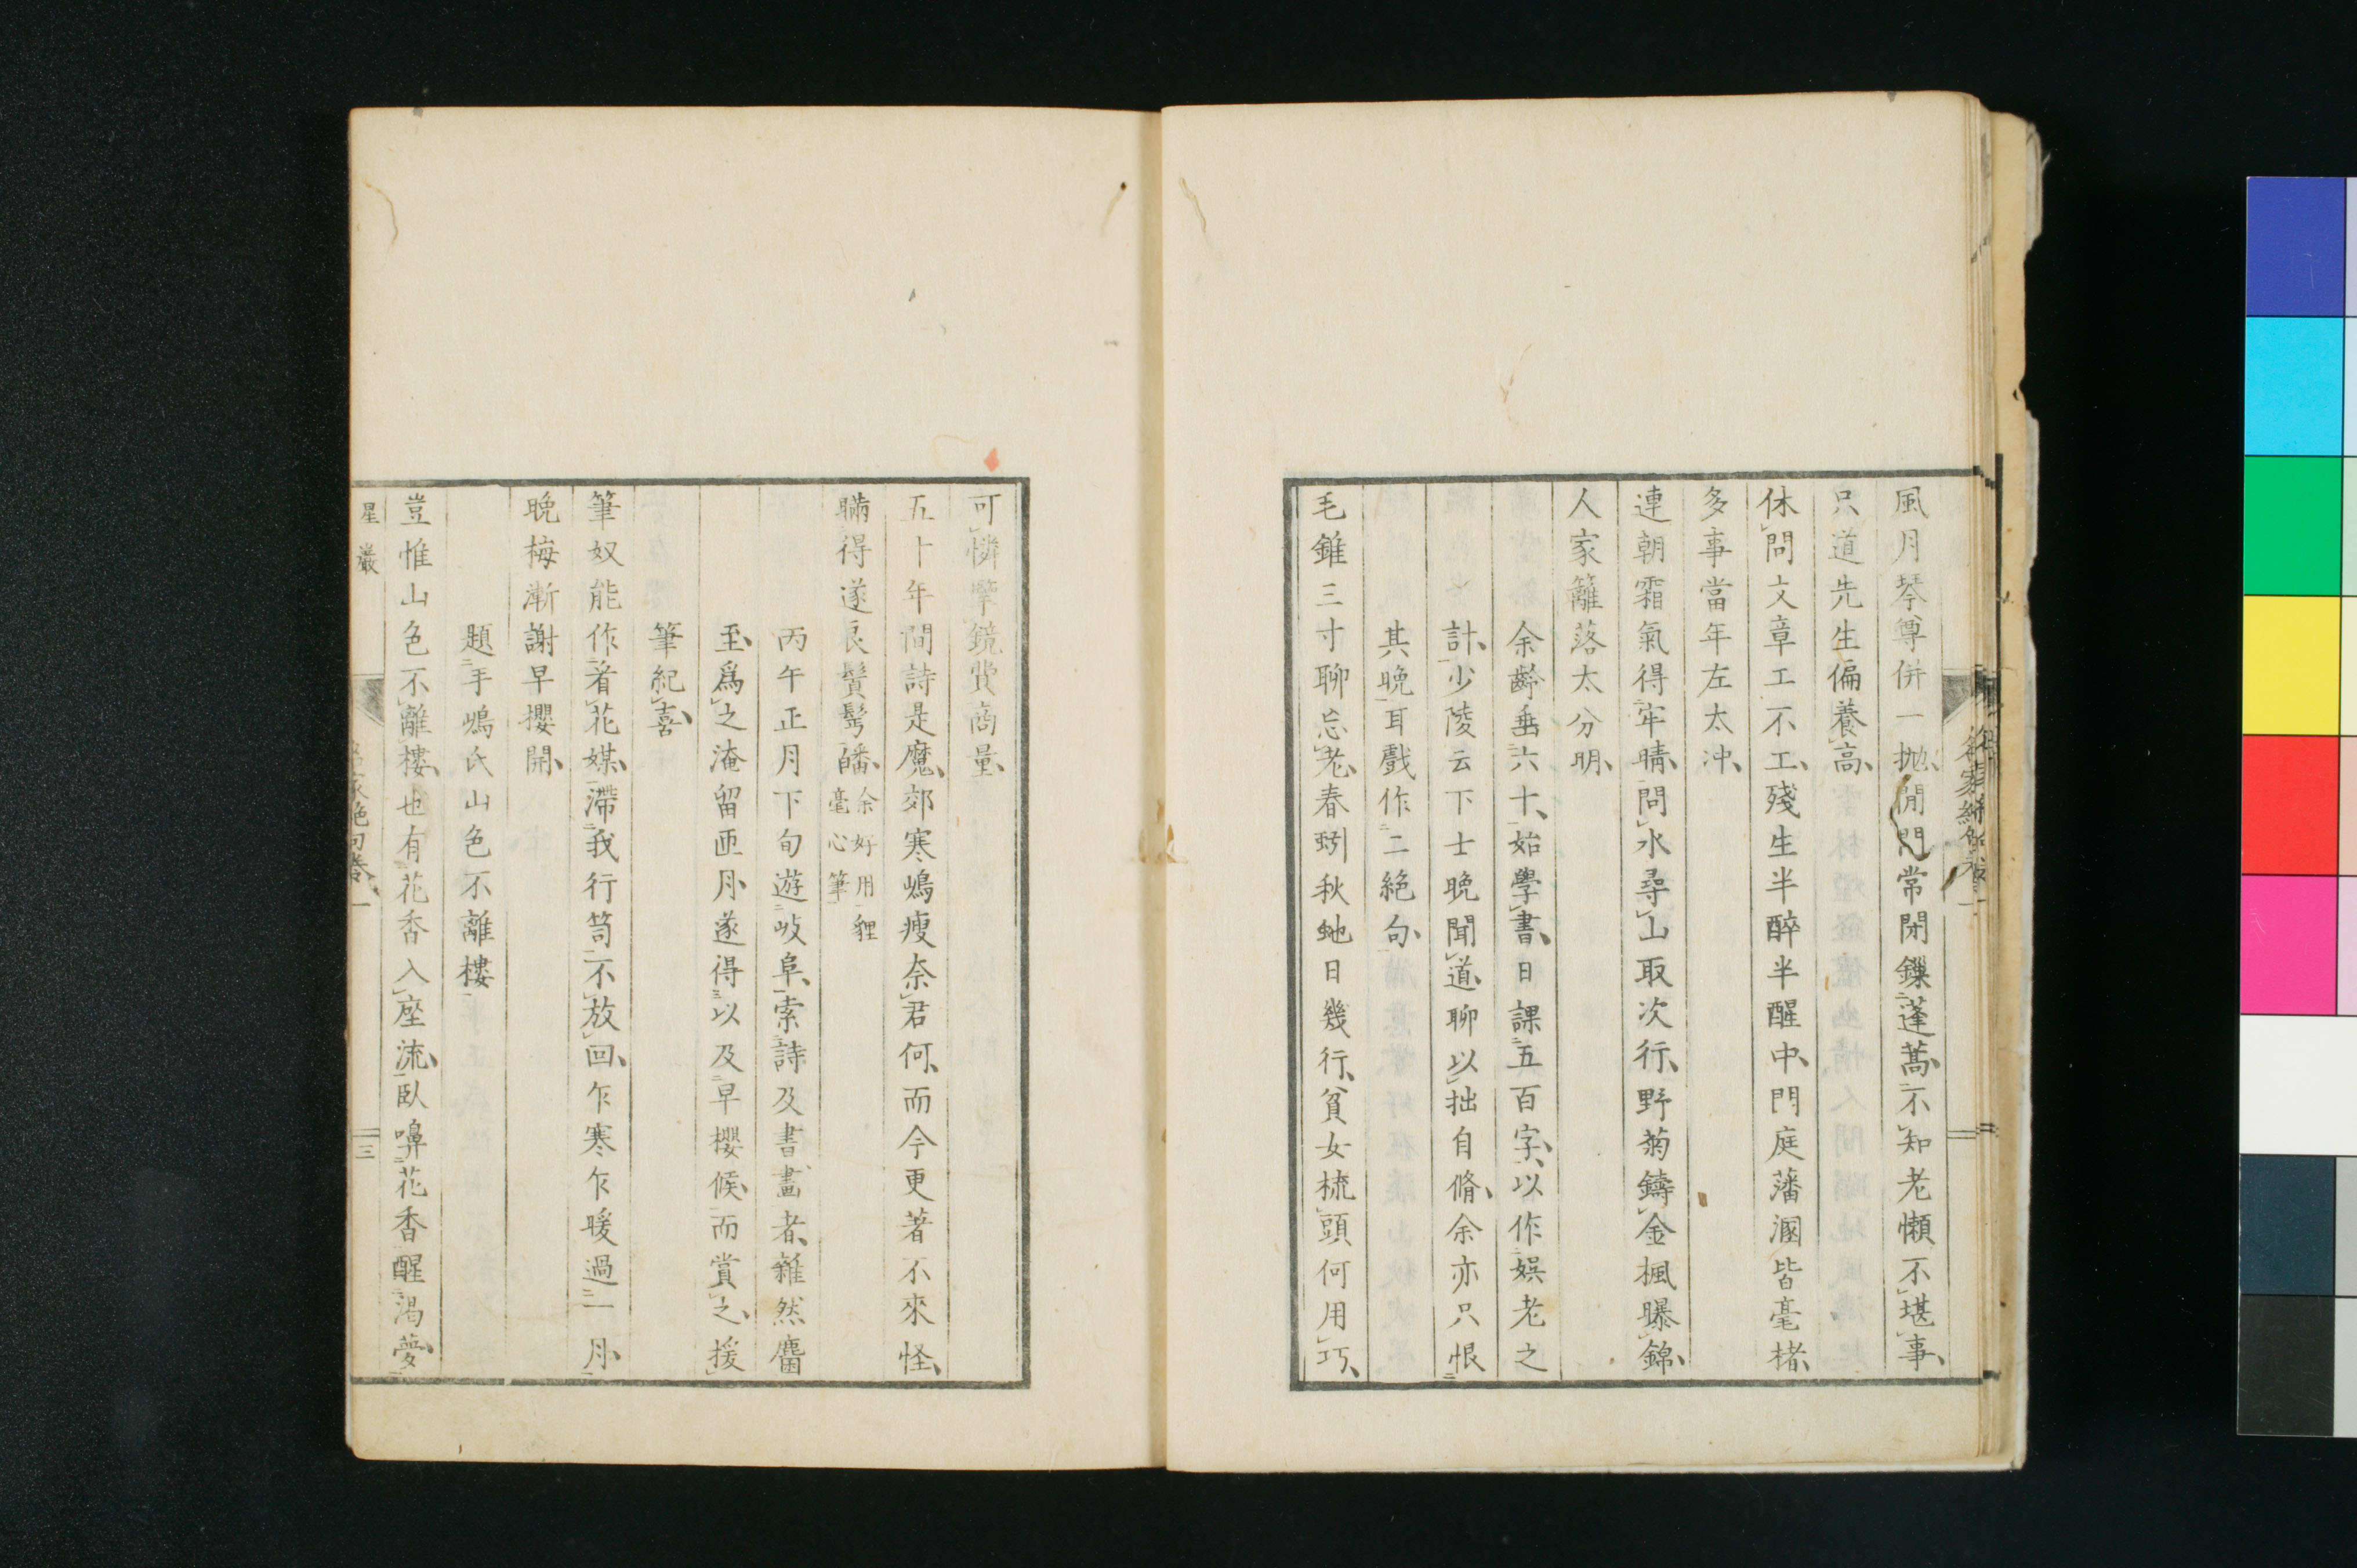 風月琴尊併一抛閒門常閉鏁蓬蒿不知老懶不堪事
只道先生偏養高
休問文章工不工殘生半醉半醒中門庭藩溷皆毫楮
多事當年左太冲
連朝霜氣得牢晴問水尋山取次行野菊鑄金楓曝錦
人家籬落太分明
余齡垂六十始學書日課五百字以作娯老之
計少陵云下士晩聞道聊以拙自脩余亦只恨
其晩耳戲作二絶句
毛錐三寸聊忘老春蚓秋虵日幾行貧女梳頭何用巧
可憐擎鏡費商量
五十年間詩是魔郊寒嶋瘦奈君何而今更著不來怪
瞞得遂良鬢髩皤
余好用貍
毫心筆
丙午正月下旬遊岐阜索詩及書畫者雜然麕
至爲之淹留匝月遂得以及早櫻候而賞之援
筆紀喜
筆奴能作着花媒滯我行笥不放回乍寒乍暖過一月
晩梅漸謝早櫻開
題手嶋氏山色不離樓
豈惟山色不離樓也有花香入座流臥嗅花香醒渴夢
星巖
名家絶句卷一
三